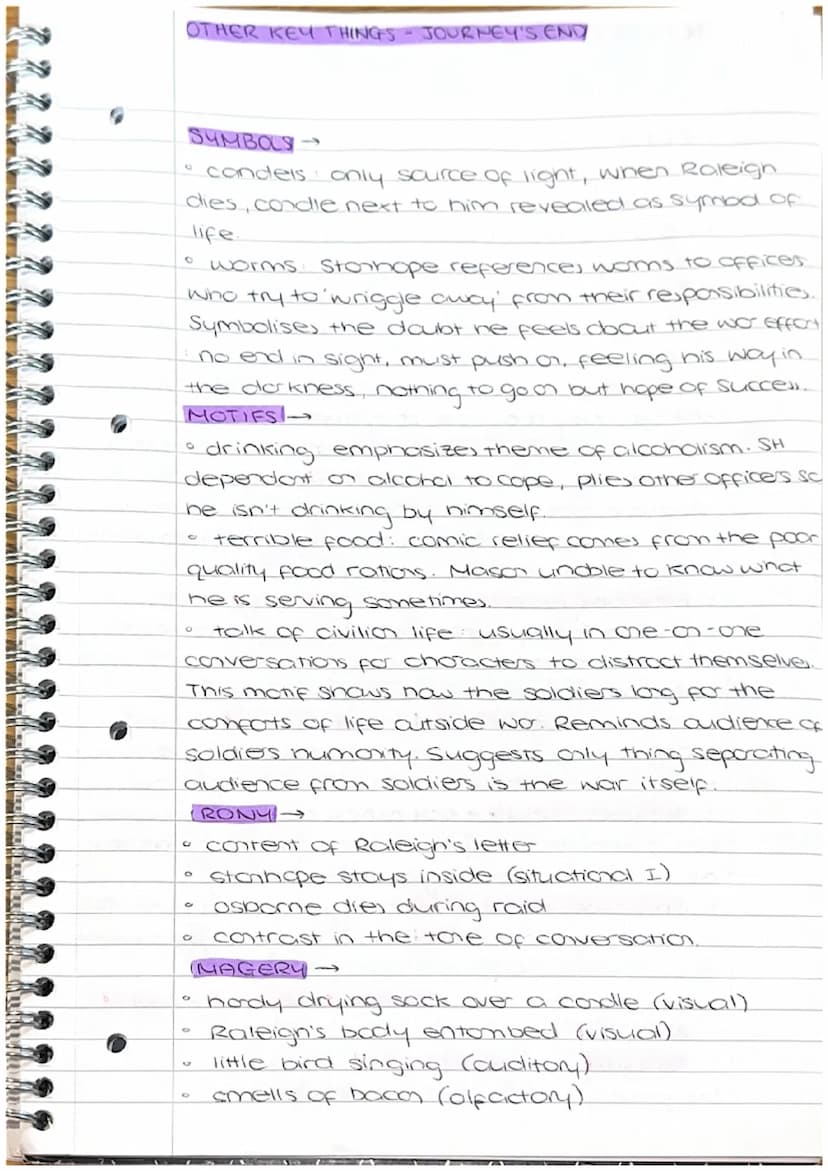 OTHER KEY THINGS - JOURNEY'S END
SYMBOLS →
• candels: only source of light, when Raleigh
dies, candle next to him revealed as symbol of
life.
• worms: Stanhope references worms to offices
who try to 'wriggle away' from their responsibilities.
Symbolises the doubt he feels about the war effort
: no end in sight, must push on, feeling his way in
the darkness, nothing to go on but hope of success.
MOTIFS →
• drinking: emphasizes theme of alcoholism. SH
dependant on alcohol to cope, plies other officers so
he isn't drinking by himself.
• terrible food: comic relief comes from the poor
quality food rations. Mason unable to know what
he is serving sometimes.
• talk of civilian life: usually in one-on-one
conversations for characters to distract themselves.
This motif shows how the soldiers long for the
comforts of life outside war. Reminds audience of
soldiers humanity. Suggests only thing separating
audience from soldiers is the war itself.
IRONY →
• content of Raleigh's letter
• stanhope stays inside (situational I)
• osborne dies during raid
• contrast in the tone of conversation.
IMAGERY →
• hardy drying sock over a candle (visual)
• Raleign's body entombed (visual)
• little bird singing (auditory)
• smells of bacon (olfactory)